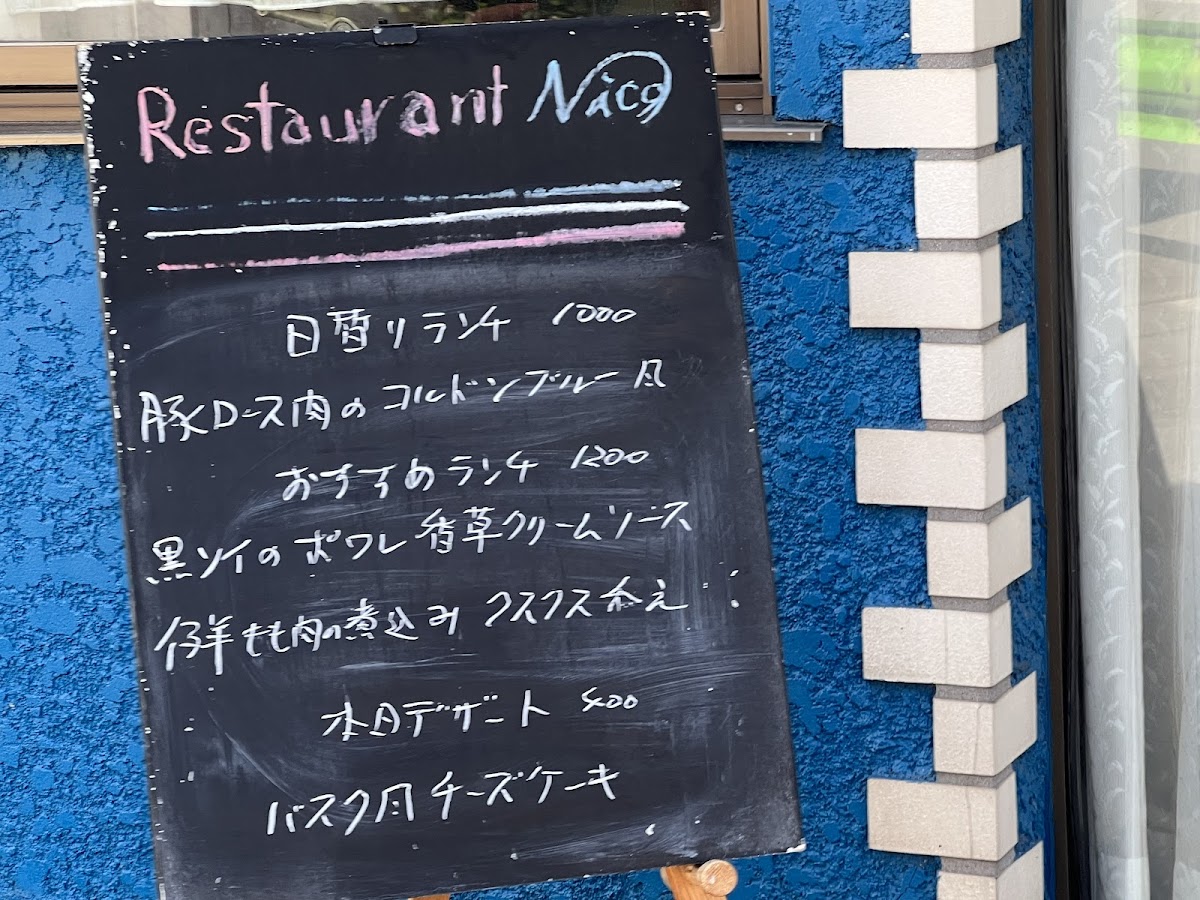 Restaurant Naco
日替りランチ 1000
豚ロース肉のコルドンブルー風
おすすめランチ 1200
黒ソイのポワレ香草クリームソース
仔羊もも肉の煮込みクスクス添え
本日デザート 400
バスク風チーズケーキ